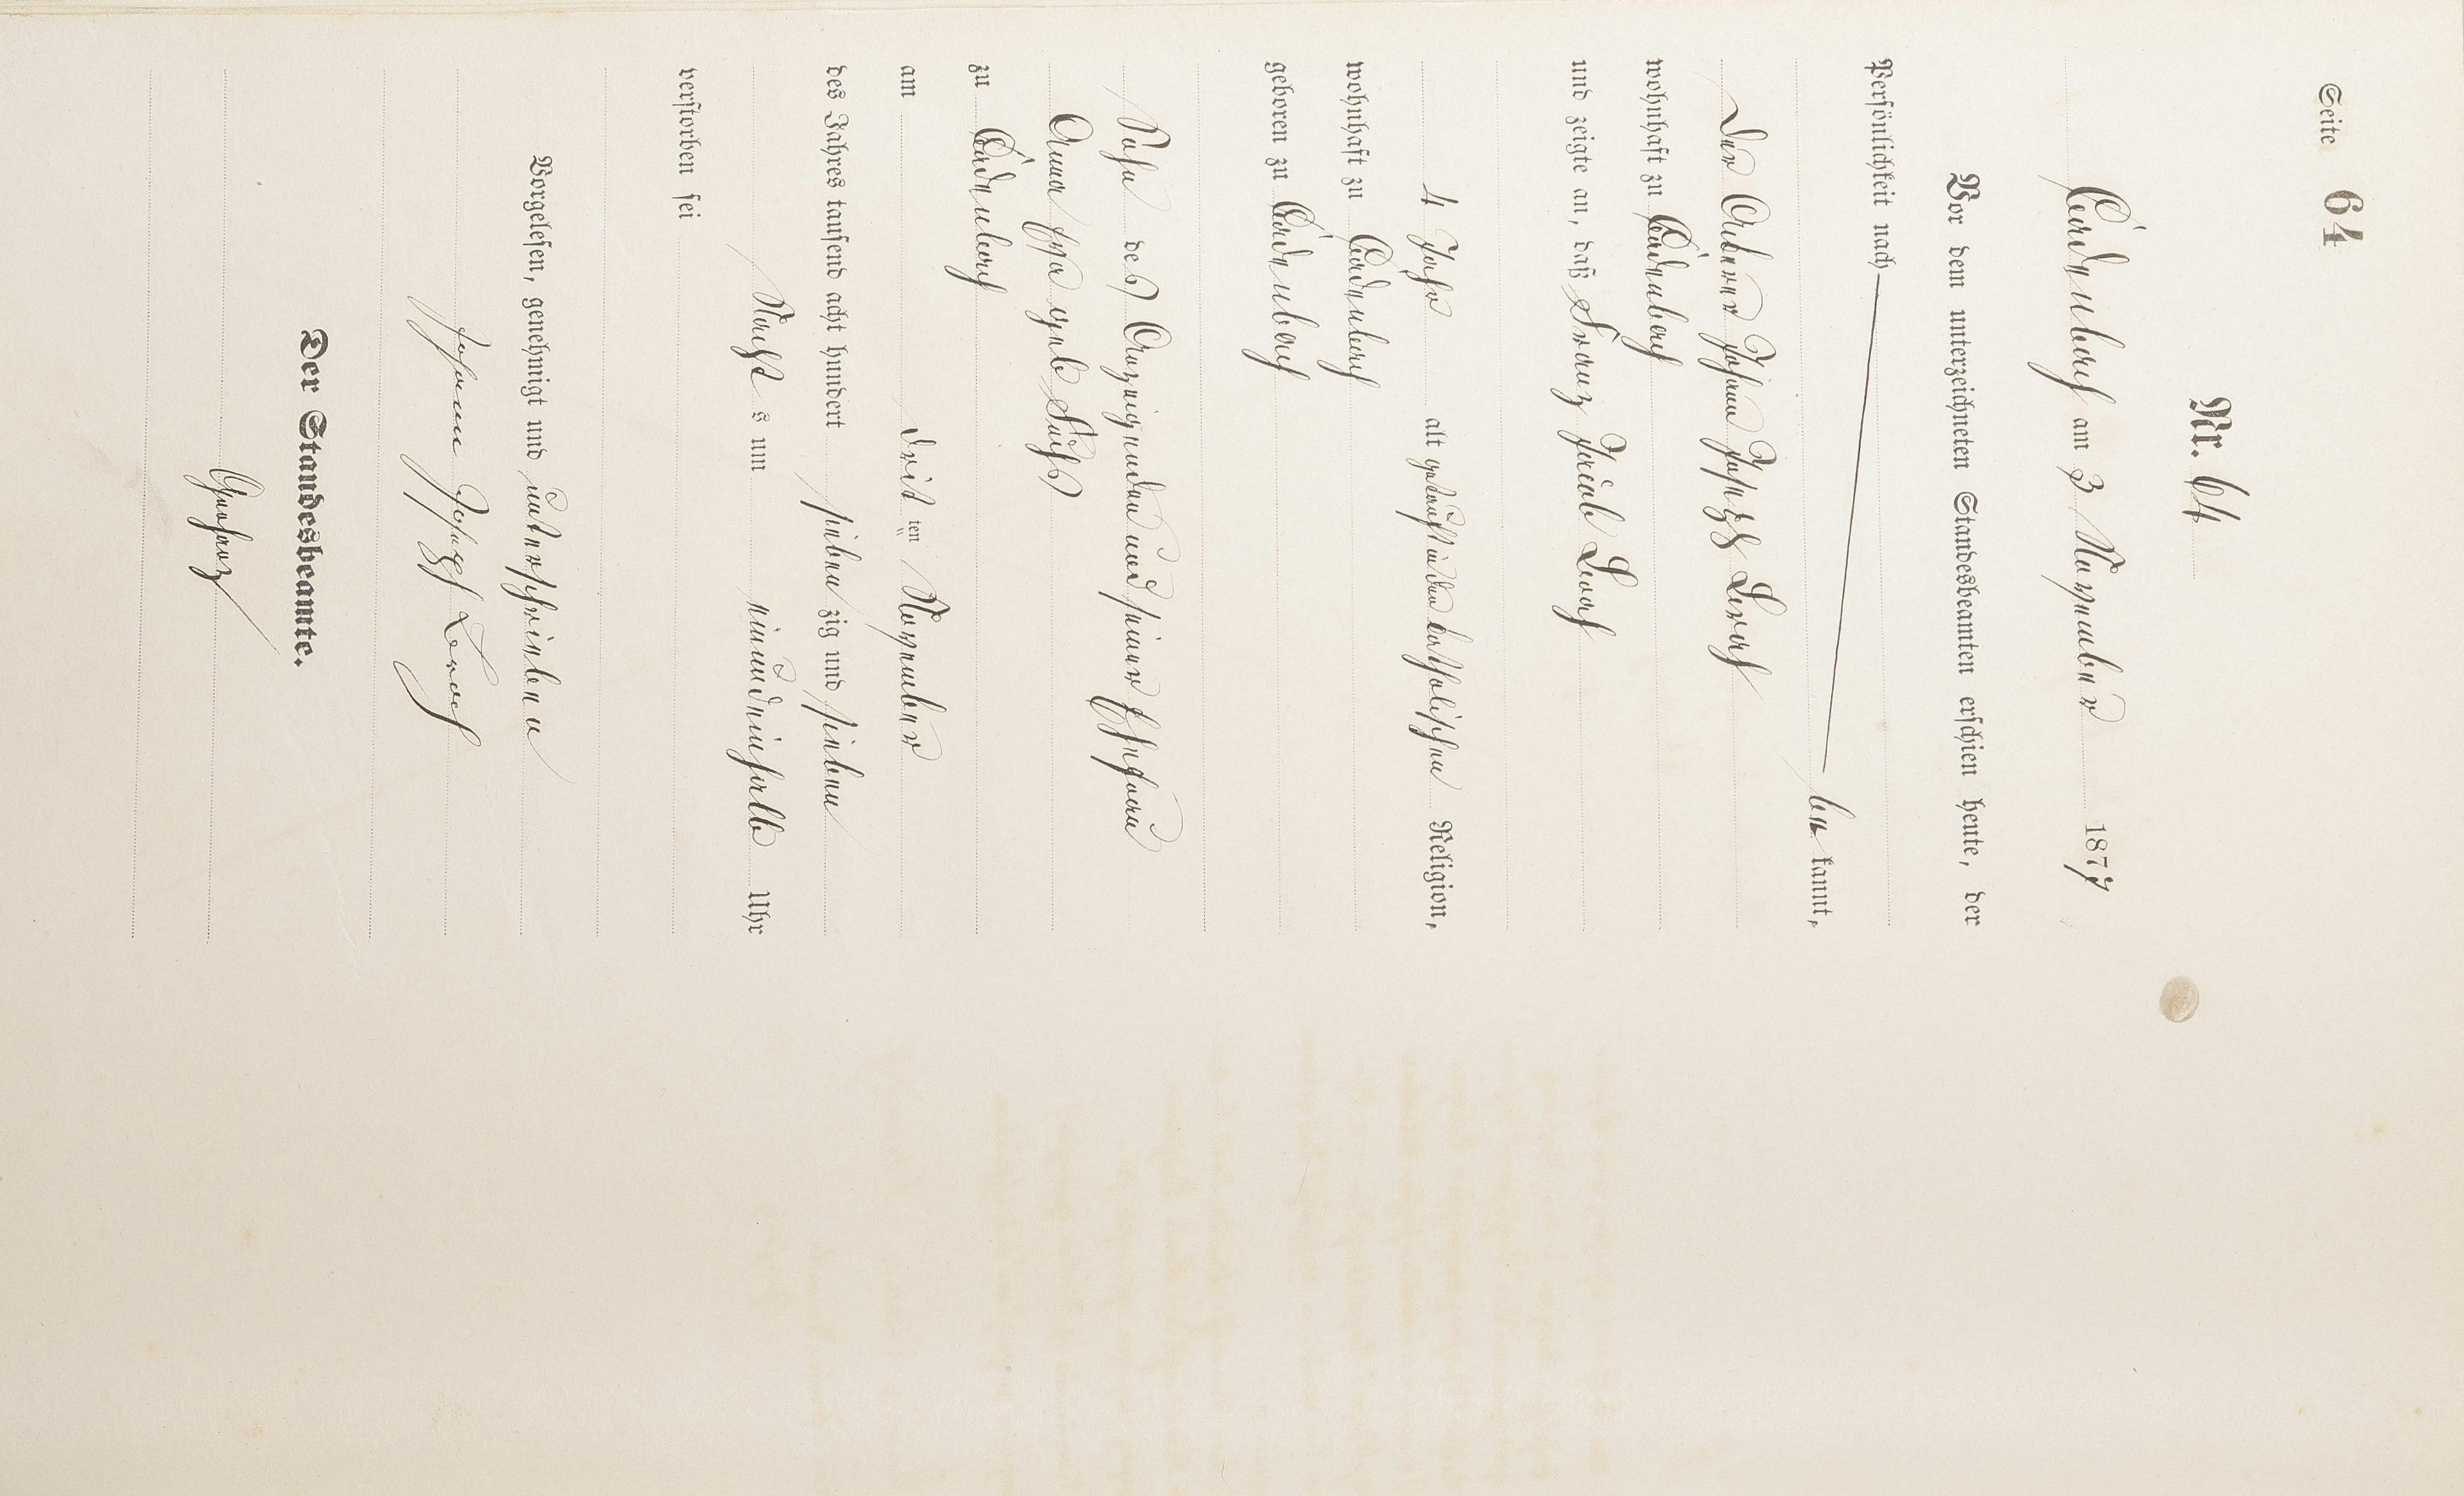 Seite 64
Nr. 64
Cadenbach am 3 November 1877
Vor dem unterzeichneten Standesbeamten erschien heute, der
Persönlichkeit nach
bekannt,
der Ackerer Johann Joseph Lorch
wohnhaft zu Cadenbach
und zeigte an, daß Franz Jacob Lorch
4 Jahr alt getauft in der katholischen Religion,
wohnhaft zu Cadenbach
geboren zu Cadenbach
Sohn des Anzeigenden und seiner Ehefrau
Anna Eva geb
zu Cadenbach
am dritten November
des Jahres tausend acht hundert siebenzig und sieben
Nachts um einundeinhalb Uhr
verstorben sei
Vorgelesen, genehmigt und unterschrieben
Johann Joseph Lorch
Der Standesbeamte.
Gerharz